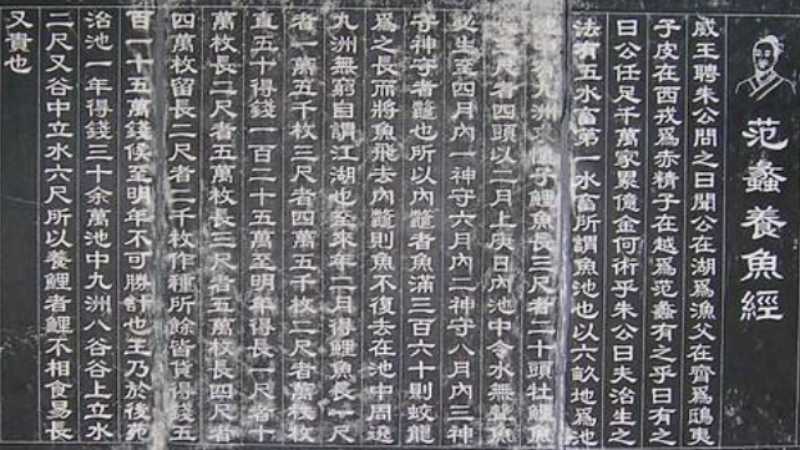 范蠡養魚經
威王聘朱公問之曰聞公在湖爲漁父在齊爲鴟夷
子皮在西戎爲赤精子在越爲范蠡有之乎曰有之
曰公任足千萬家累億金何術乎朱公曰夫治生之
法有五水畜第一水畜所謂魚池也以六畝地爲池
九洲子鯉魚長三尺者二十頭牡鯉魚
三尺者四頭以二月上庚日內池中令水無聲魚
必生至四月內一神守六月內二神守八月內三神
守神守者鼈也所以內鼈者魚滿三百六十則蛟龍
爲之長而將魚飛去內鼈則魚不復去在池中周遶
九洲無窮自謂江湖也至來年二月得鯉魚長一尺
者一萬五千枚三尺者四萬五千枚二尺者萬枚枚
直五十得錢一百二十五萬至明年得長一尺者十
萬枚長二尺者五萬枚長三尺者五萬枚長四尺者
四萬枚留長二尺者二千枚作種所餘皆貨得錢五
百一十五萬錢候至明年不可勝計也王乃於後苑
治池一年得錢三十余萬池中九洲八谷谷上立水
二尺又谷中立水六尺所以養鯉者鯉不相食易長
又貴也